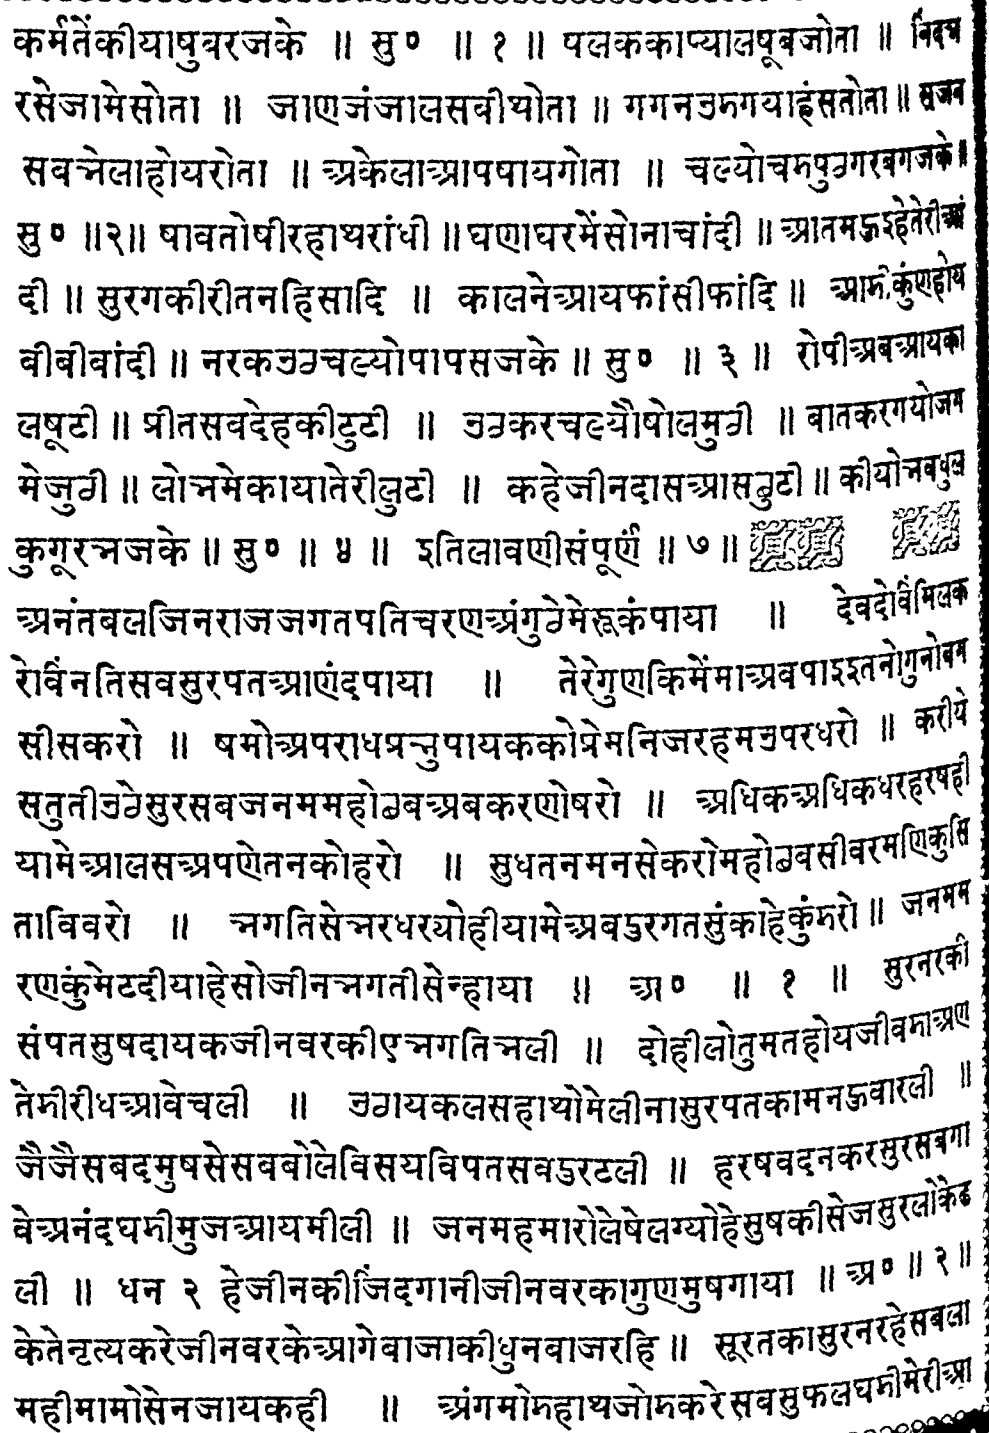 कर्मतेंकीयाषुबरजके ॥ सु० ॥ १ ॥ पलककाप्यालषूबजोता ॥ निंदभ
रसेजामेसोता ॥ जाणजंजालसबीथोता ॥ गगनउमगयाहंसतोता ॥ सजन
सबभेलाहोयरोता ॥ अकेलाआपषायगोता ॥ चल्योचमपुठगरबगजके ॥
सु० ॥२॥ षावतोषीरहाथरांधी ॥ घणाघरमेंसोनाचांदी ॥ आतमऊइहेतेरीआं
दी ॥ सुरगकीरीतनहिसादि ॥ कालनेआयफांसीफांदि ॥ आमी.कुंणहोय
बीबीबांदी ॥ नरकउठचल्योपापसजके ॥ सु० ॥ ३ ॥ रोपीअबआयका
लषूटी ॥ प्रीतसबदेहकीटुटी ॥ उठकरचल्यौषोलमुठी ॥ बातकरगयोजम
मेजुठी ॥ लोभमेकायातेरीलुटी ॥ कहेजीनदासआसछुटी ॥ कीयोभबधुल
कुगूरभजके ॥ सु० ॥ ४ ॥ इतिलावणीसंपूर्ण ॥ ७ ॥
अनंतबलजिनराजजगतपतिचरणअंगुठेमेरूकंपाया ॥ देवदोविंमिलक
रोविंनतिसबसुरपतआणंदपाया ॥ तेरेगुणकिमेंमाअवपाइइतनोगुनोबम
सीसकरो ॥ षमोअपराधप्रभुपायककोप्रेमनिजरहमउपरधरो ॥ करीये
सतुतीउठेसुरसबजनममहोछबअबकरणोषरो ॥ अधिकअधिकधरहरषही
यामेआलसअपणेतनकोहरो ॥ सुधतनमनसेकरोमहोछवसीवरमणिकुसि
ताविवरो ॥ भगतिसेभरधरयोहीयामेअबडुरगतसुंकाहेकुंमरो ॥ जनमम
रणकुंमेटदीयाहेसोजीनभगतीसेन्हाया ॥ अ० ॥ १ ॥ सुरनरकी
संपतसुषदायकजीनवरकीएभगतिभली ॥ दोहीलोतुमतहोयजीवमाअण
तेमीरीधआवेचली ॥ उठायकलसहाथोमेलीनासुरपतकामनऊवारली ॥
जैजैसबदमुषसेसबबोलेविसयविपतसवडुरटली ॥ हरषवदनकरसुरसबगा
वेअनंदघमीमुजआयमीली ॥ जनमहमारोलेषेलग्योहेसुषकीसेजसुरलोकेढ
ली ॥ धन २ हेजीनकीजिंदगानीजीनवरकागुणमुषगाया ॥ अ० ॥ २ ॥
केतेनृत्यकरेजीनवरकेआगेबाजाकीधुनबाजरहि ॥ सूरतकासुरनरहेसबला
महीमामोसेनजायकही ॥ अंगमोमहाथजोमकरेसबसुफलघमीमेरीआ